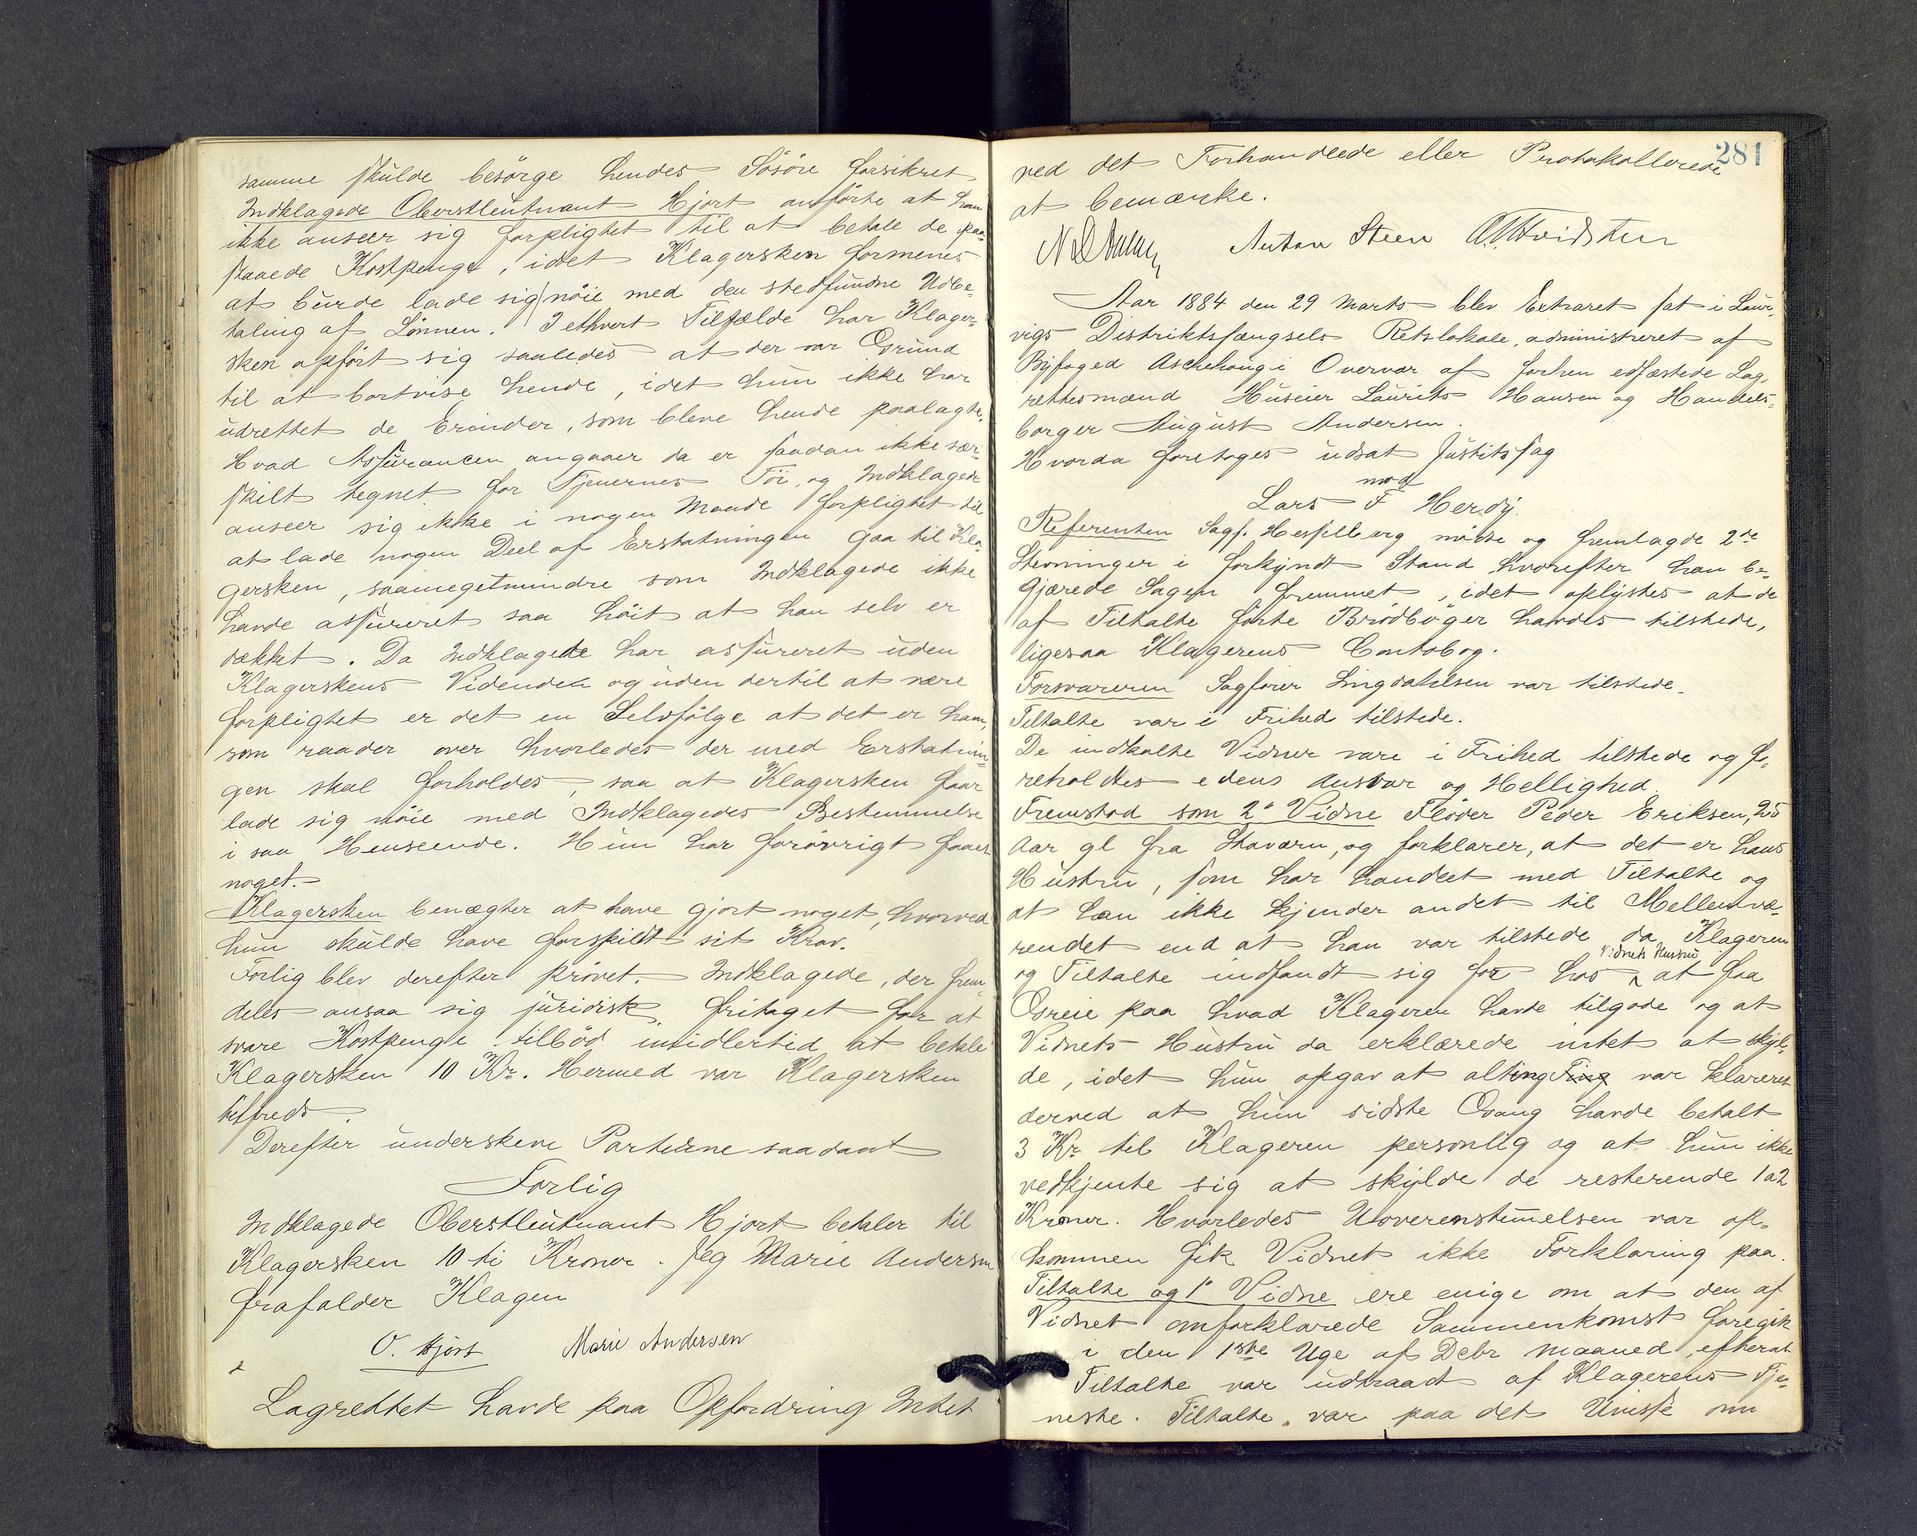 samme skulde besörge hendes Tösöre forsikret
Indklagede Oberstleutnant Hjort anförte at han
ikke anseer sig forpligtet til at betale de paa-
staaede Kostpenge, idet Klagersken formenes
at burde lade sig nöie med den stedfundne Udbe-
taling af Lönnen. I ethvert Tilfælde har Klager-
sken opfört sig saaledes at der var Grund
til at bortvise hende, idet hun ikke har
udrettet de Erinder, som bleve hende paalagte.
Hvad Assurancen angaaer da er saadan ikke sær-
skilt tegnet for Tjenernes Töi, og Indklagede
anseer sig ikke i nogen Maade forpligtet til
at lade nogen Deel af Erstatningen gaa til Kla-
gersken, saameget mindre som Indklagede ikke
havde assureret saa höit at han selv er
dækket. Da Indklagede har assureret uden
Klagerskens Vidende og uden dertil at være
forpligtet er det en Selvfölge at det er ham,
som raader over hvorledes der med Erstatnin-
gen skal forholdes, saa at Klagersken faar
lade sig nöie med Indklagedes Bestemmelse
i saa Henseende. Hun har forövrigt faaet
noget.
Klagersken benægter at have gjort noget, hvorved
hun skulde have forspildt sit Krav.
Forlig blev derefter prövet. Indklagede, der frem-
deles ansaa sig juridisk fritaget for at
svare Kostpenge tilböd imidlertid at betale
Klagersken 10 Kr. Hermed var Klagersken
tilfreds.
Derefter underskrev Parterne saadant
Forlig
Indklagede Oberstleutnant Hjort betaler til
Klagersken 10 ti Kroner. Jeg Marie Andersen
frafalder Klagen
O. Hjort Marie Andersen
Lagrettet havde paa Opfordring Intet
281
ved det Forhandlede eller Protokollerede
at bemærke.
Anton Steen
Aar 1884 den 29 Marts blev Extraret sat i Laur-
vigs Distriktsfængsels Retslokale, administreret af
Byfoged Aschehoug i Overvær af forhen edfæstede Lag-
rettesmænd Huseier Laurits Hansen og Handels-
borger August Andersen.
Hvorda foretoges udsat Justitssag
mod
Lars F Herdy.
Referenten Sagf. Hesselberg mödte og fremlagde 2de
Stevninger i forkyndt Stand hvorefter han be-
gjærede Sagen fremmet, idet oplystes at de
af Tiltalte förte Brödböger havdes tilstede,
ligesaa Klagerens Contobog.
Forsvareren Sagförer Lingdahlsen var tilstede.
Tiltalte var i Frihed tilstede.
De indkaldte Vidner vare i Frihed tilstede og fo-
reholdtes edens Ansvar og Hellighed.
Fremstod som 2° Vidne Flöder Peder Eriksen, 25
Aar gl fra Stavern, og forklarer, at det er hans
Hustru, som har handlet med Tiltalte og
at han ikke kjender andet til Mellemvæ-
rendet end at han var tilstede da Klageren
og Tiltalte indfandt sig for hos Vidnets Hustru at faa
Greie paa hvad Klageren havde tilgode og at
Vidnets Hustru da erklærede intet at skyl-
de, idet hun opgav at alting Ting var klareret
derved at hun sidste Gang havde betalt
3 Kr til Klageren personlig og at hun ikke
vedkjente sig at skylde de resterende 1 a 2
Kroner. Hvorledes Uoverensstemelsen var op-
kommen fik Vidnet ikke Forklaring paa.
Tiltalte og 1° Vidne ere enige om at den af
Vidnet omforklarede Sammenkomst foregik
i den 1ste Uge af Debr maaned, efterat
Tiltalte var udtraadt af Klagerens Tje-
neste. Tiltalte var paa det Uvisse om